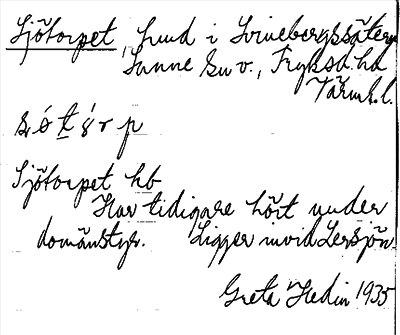 Sjötorpet, hmd i Svinebergssätern
Sunne sn v., Fryksd. hd
Värml. l.
Sjötorpet hb
Har tidigare hört under
domänstyr. Ligger invid Lersjön
Greta Hedin 1935